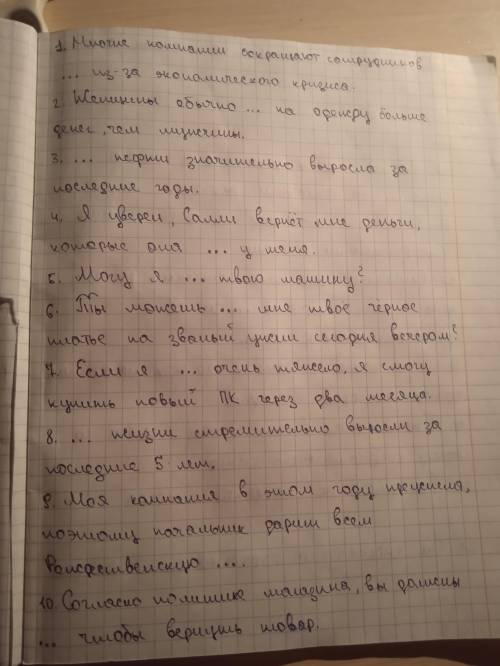 1. Многие компании сокращают сотрудников
... из-за экономического кризиса.
2. Женщины обычно ... на одежду больше
денег, чем мужчины.
3. ... нефти значительно выросла за
последние годы.
4. Я уверен, Салли вернёт мне деньги,
которые она ... у меня.
5. Могу я ... твою машину?
6. Ты можешь ... мне твоё чёрное
платье на званый ужин сегодня вечером?
7. Если я ... очень тяжело, я смогу
купить новый ПК через два месяца.
8. ... жизни стремительно выросли за
последние 5 лет.
9. Моя компания в этом году преуспела,
поэтому начальник дарит всем
Рождественскую ....
10. Согласно политике магазина, вы должны
... чтобы вернуть товар.